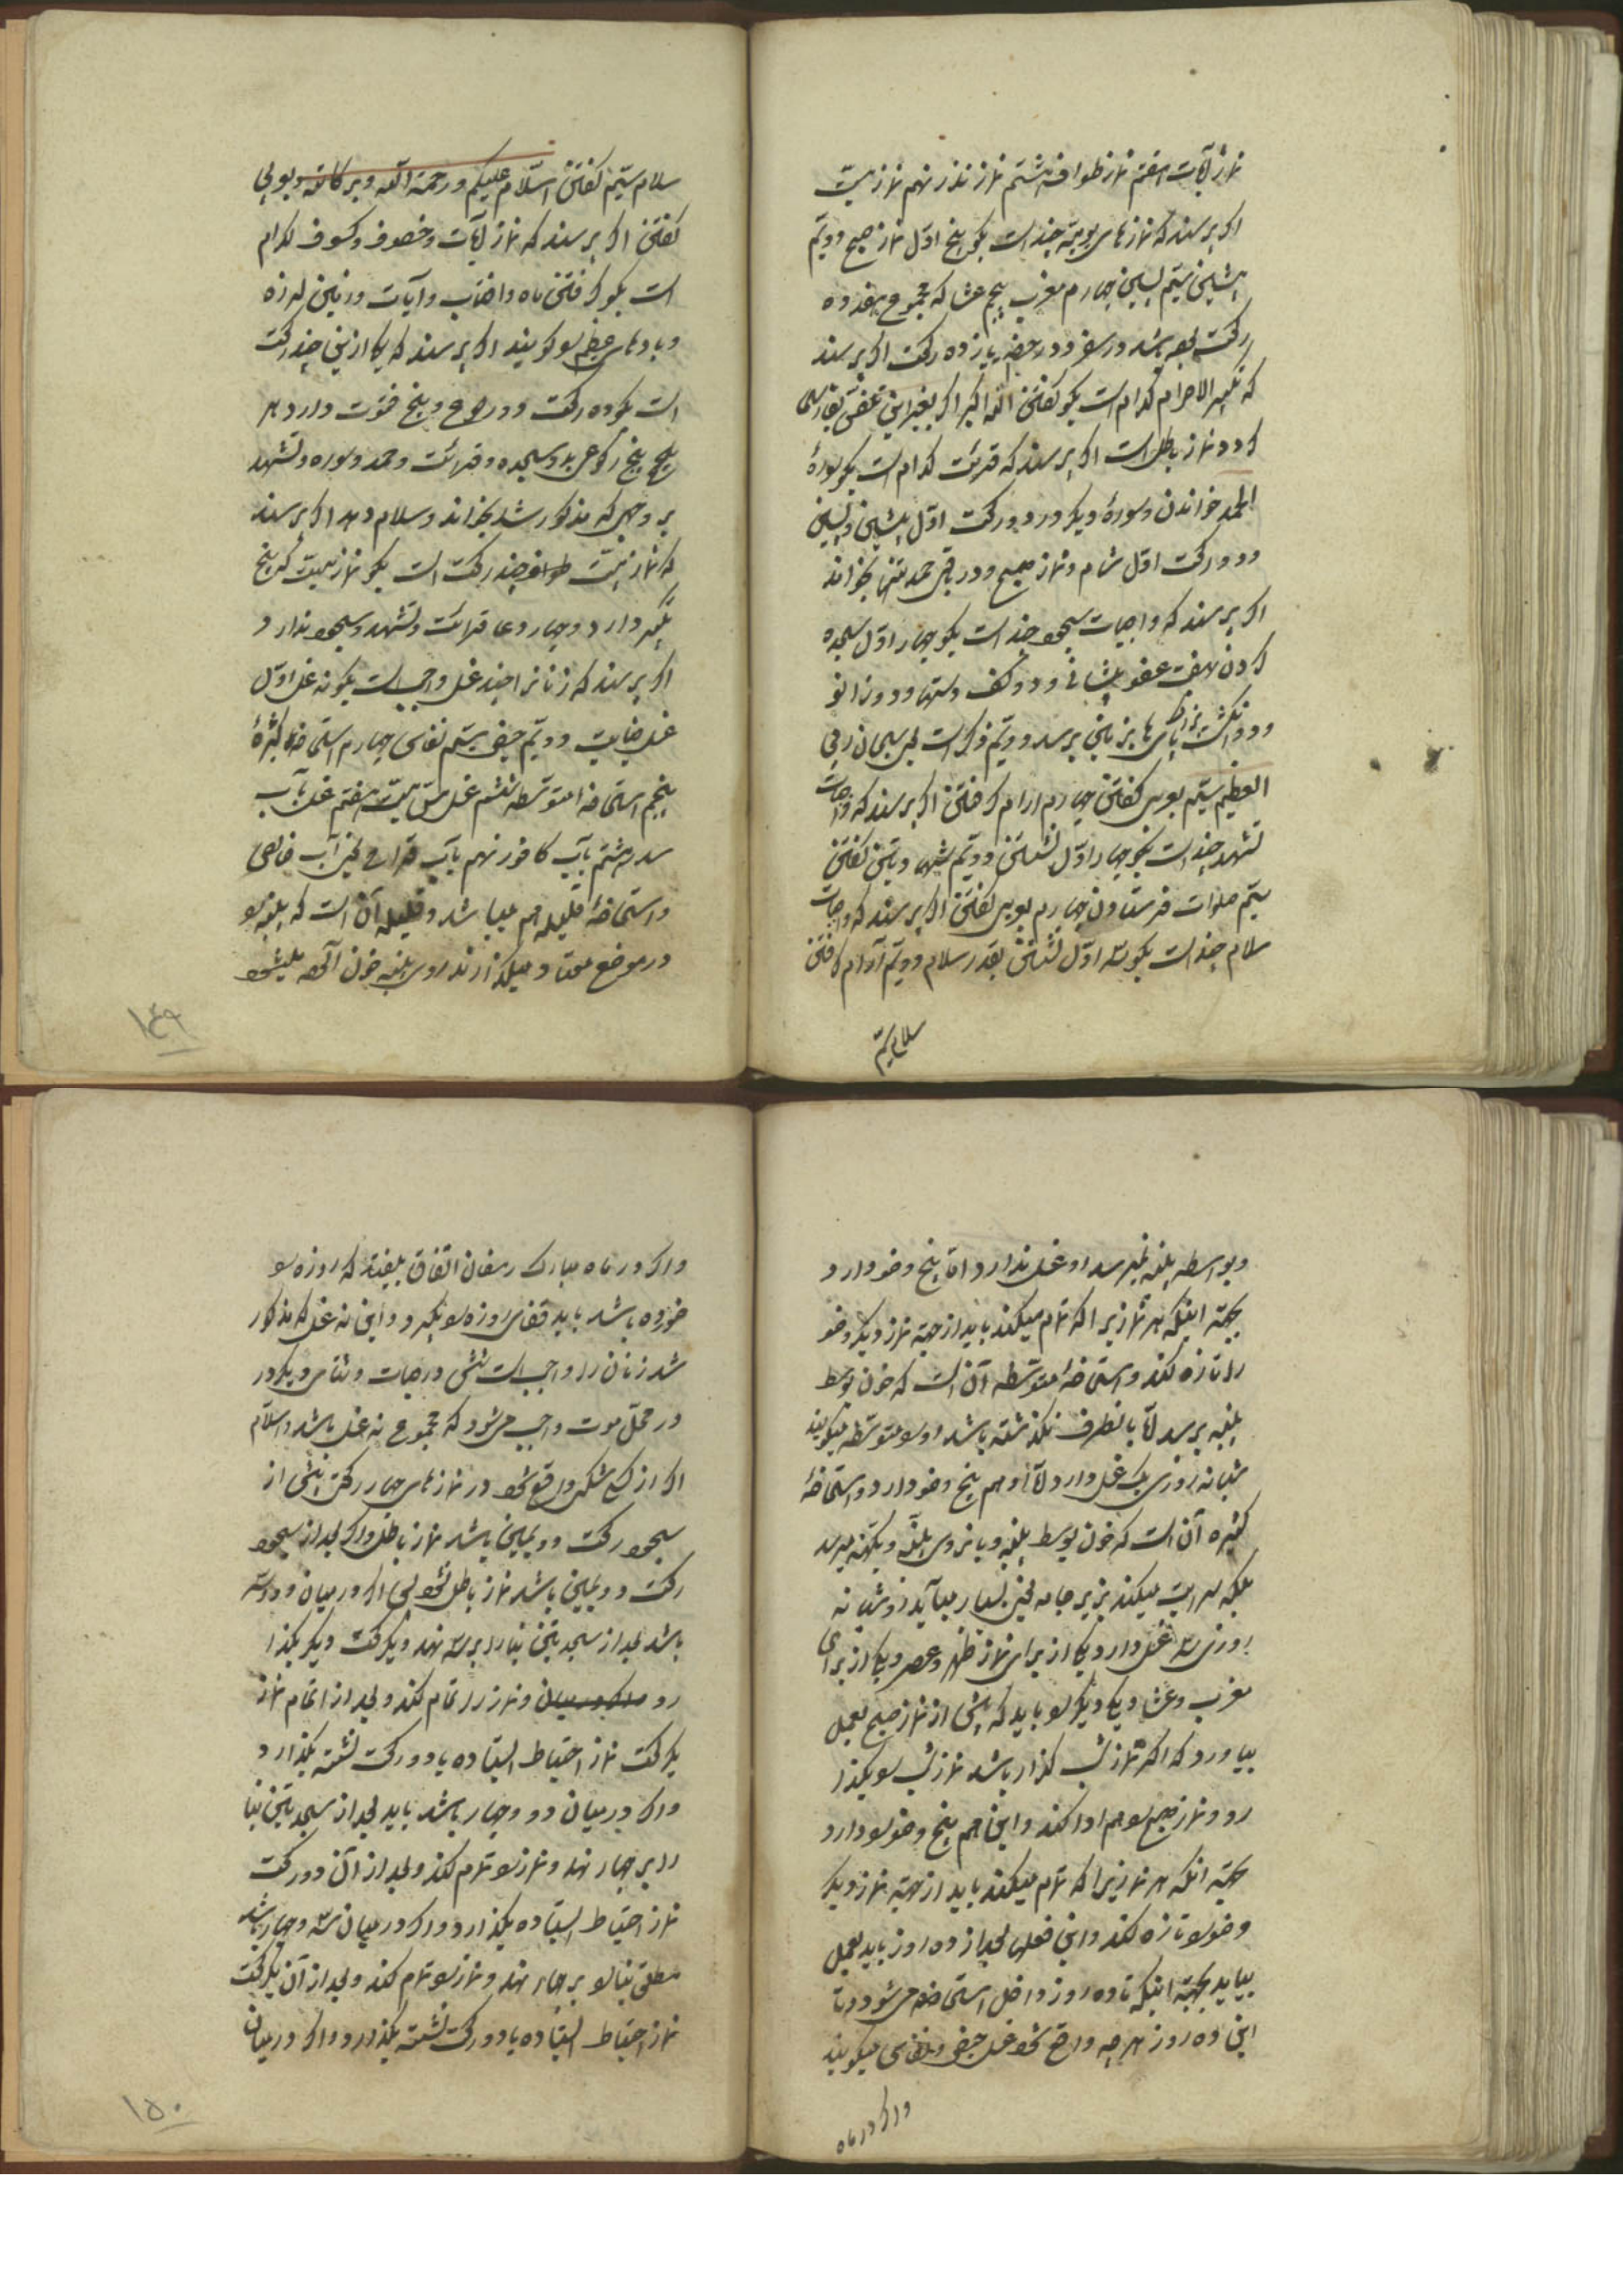 نماز آیات هفتم نماز طواف هشتم نماز نذر نهم نماز میت
اکر پرسند که نمازهای یومیّه چند است بکو پنج اوّل نماز صبح دویّم
پیشین سیّم پسین چهارم مغرب پنجم عشا که مجموع هفده
رکعت بوده باشد در سفر و در حضر یازده رکعت اکر پرسند
که تکبیر الاحرام کدام است بکو کفتن اللّه اکبر اکر بغیر این تلفظ بفارسی
کردد نماز باطل است اکر پرسند که قرائت کدام است بکو سورهٔ
الحمد خواندن و سورهٔ دیکر در دو رکعت اوّل پیشین و پسین
و دو رکعت اول شام و نماز صبح و در باقی حمد تنها بخواند
اکر پرسند که واجبات سجود چند است بکو چهار اوّل سجده
کردن هفت عضو پیشانی و دو کف دستها و دو زانو
و دو انکشت بزرک پاها بزمین برسد دویّم ذکر است یعنی سبحان ربی
العظیم سیّم عربی کفتن چهارم آرام کرفتن اکر پرسند که واجبات
تشهد چند است بکو چهار اوّل نشستن و دویّم شهادتین کفتن
سیّم صلوات فرستادن چهارم عربی کفتن اکر پرسند که واجبات
سلام چند است بکو سه اوّل نشستن بقدر سلام دویّم آرام کرفتن
سلام سیّم
سلام سیّم کفتن السّلام علیکم و رحمة اللّه و برکاته و عربی
کفتن اکر پرسند که نماز آیات و خصوف و کسوف کدام
است بکو کرفتن ماه و افتاب و آیات و زمین لرزه
و بادهای عظیم را کویند اکر پرسند که هر یکی ازینی چند رکعت
است بکو ده رکعت و دو رجوع و پنج قنوت دارد هر
پنج پنج رکوعی بدو سجده و قرائت و حمد و سوره و تشهد
بر وجهی که مذکور شد بخواند و سلام دهد اکر پرسند
که نماز میّت چند رکعت است بکو نماز میت که پنج
تکبیر دارد و چهار دعا قرائت و تشهد و سجود ندارد
اکر پرسند که زنانرا چند غسل واجب است بکو نه غسل اوّل
غسل جنابت و دویّم حیض سیّم نفاس چهارم استحاضهٔ کثیرهٔ
پنجم استحاضهٔ متوسّطه ششم غسل مسّ میّت هفتم غسل بآب
سدر هشتم بآب کافور نهم بآب قراح یعنی آب خالص
و استحاضهٔ قلیله هم میباشد و قلیله آن است که پنبه را
در موضع معتاد میکذارند روی پنبه خون آلوده میشود
۱۴۹
و بواسطه پنبه نمیرسد او غسل ندارد امّا پنج وضو دارد
بجهة اینکه هر نمازیرا که تمام میکند باید از جهة نماز دیکر وضو
را تازه کند و استحاضهٔ متوسّطه آن است که خون بوسط
پنبه برسد امّا بانطرف نکذشته باشد او را متوسّطه میکویند
شبانه روزی یک غسل دارد امّا او هم پنج وضو دارد و استحاضهٔ
کثیره آن است که خون بوسط پنبه و بانروی پنبه و بکهنه میرسد
بلکه سرایت میکند بزیر جامه یعنی بسیار میآید او شبانه
روزی سه غسل دارد یکی از برای نماز ظهر و عصر و یکی از برای
مغرب و عشا و یکی دیکر را باید که پیش از نماز صبح بعمل
بیاورد که اکر نماز شب کذار باشد نماز شب را بکذا
رد و نماز صبح را هم ادا کند و این هم پنج وضو را دارد
بجهة انکه هر نمازیرا که تمام میکند باید از جهة نماز دیکر
وضو را تازه کند و این فعلها بعد از ده روز باید بعمل
بیاید بجهة اینکه تا ده روز داخل استحاضه میشود و تا
این ده روز هر چه واقع شود غسل حیض و نفاس میکویند
و اکر در ماه
و اکر در ماه مبارک رمضان اتّفاق بیفتد که روزه را
خورده باشد باید قضای روزه را بکیرد و این نه غسل که مذکور
شد زنان را واجب است شش در حیات و سهٔ دیکر در
در محلّ موت واجب میشود که مجموع نه غسل باشد والسّلام
اکر از کسی شکی واقع شود در نمازهای چهار رکعتی پیش از
سجود رکعت دویمین باشد نماز باطل و اکر بعد از سجود
رکعت دویمین باشد نماز باطل نشود یعنی اکر در میان دو و سه
باشد بعد از سجدتین بنا را بر سه نهد و یکرکعت دیکر بکذا
رد و نماز را تمام کند و بعد از اتمام نماز
یکرکعت نماز احتیاط ایستاده یا دو رکعت نشسته بکذارد
و اکر در میان دو و چهار باشد باید بعد از سجدتین بنا
را بر چهار نهد و نماز را تمام کند و بعد از آن دو رکعت
نماز احتیاط ایستاده بکذارد و اکر در میان سه و چهار باشد
مطلق بنا را بر چهار نهد و نماز را تمام کند و بعد از آن یکرکعت
نماز احتیاط ایستاده یا دو رکعت نشسته بکذارد و اکر در میان
۱۵۰